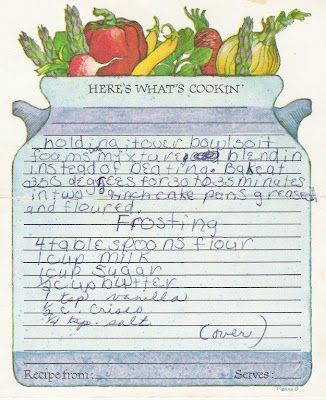 HERE'S WHAT'S COOKIN'
holding it over bowl so it
foams mixture blend in
instead of beating. Bake at
350 degrees for 30 to 35 minutes
in two 9 inch cake pans greased
and floured.
Frosting
4 tablespoons flour
1 cup milk
1 cup sugar
½ cup butter
1 tsp. vanilla
½ c. Crisco
¼ tsp. salt
(over)
Recipe from: Serves: